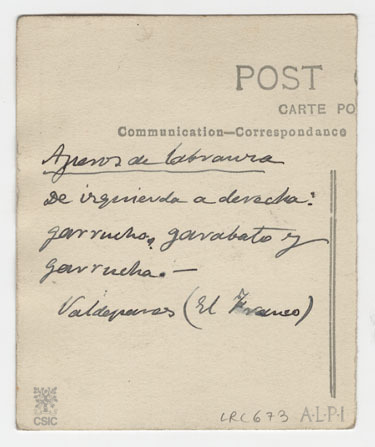 POST
CARTE PO
Communication—Correspondance
Aperos de labranza
De izquierda a derecha:
garrucho, garabato y
garrucha.—
Valdepares (El Franco)
CSIC
LRC673 A·L·P·I